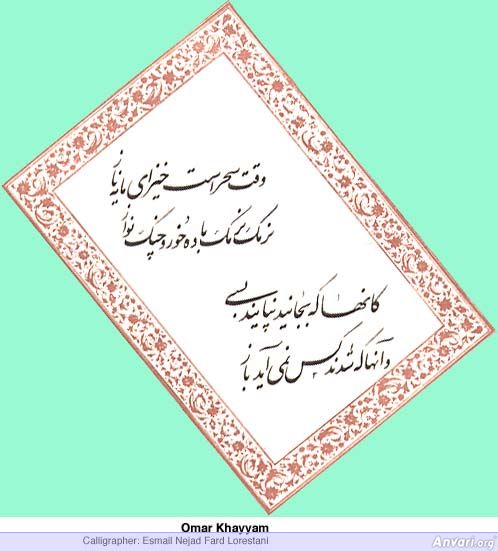 وقت سحر است خیز ای مایه ناز
نرمک نرمک باده خور و چنگ نواز
کانها که بجانید نپایند بسی
و آنها که شدند کس نمی آید باز
Omar Khayyam
Calligrapher: Esmail Nejad Fard Lorestani
Anvari.org